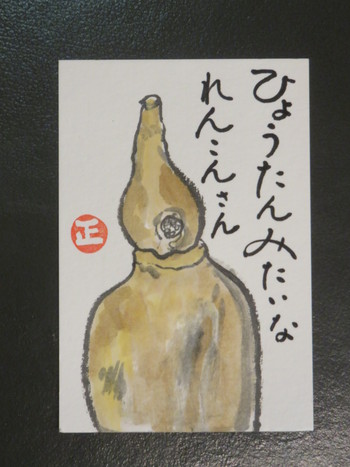 ひょうたんみたいな
れんこんさん
正